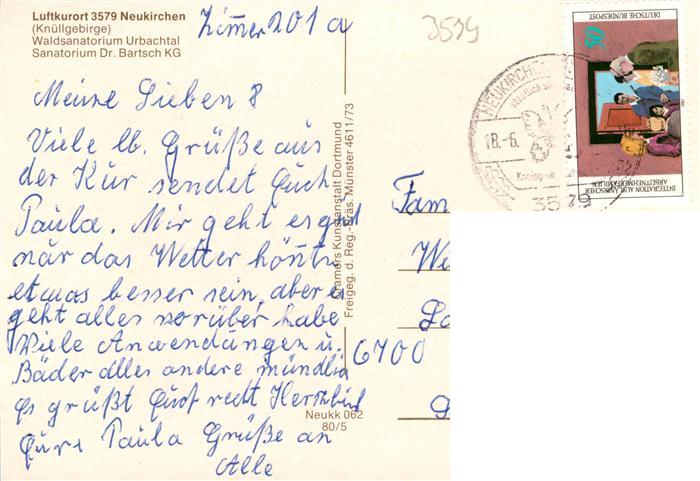 Luftkurort 3579 Neukirchen
(Knüllgebirge)
Waldsanatorium Urbachtal
Sanatorium Dr. Bartsch KG
Zimer 201 a
3579
Meine Lieben 8
Viele lb. Grüße aus
der Kur sendet Euch
Paula. Mir geht es gut
när das Wetter könnte
etwas besser sein, aber es
geht alles vorüber habe
Viele Anwendungen u.
Bäder alles andere mündlich
Es grüßt Euch recht Herzlich
Eure Paula Grüße an
Alle
Cramers Kunstanstalt Dortmund
Freigeg. d. Reg.-Präs. Münster 4611/73
Neukk 062
80/5
Fam
6700
NEUKIRCHEN
18.-6.
3579
DEUTSCHE BUNDESPOST
50
INTEGRATION AUSLÄNDISCHER
ARBEITNEHMERFAMILIEN
1981